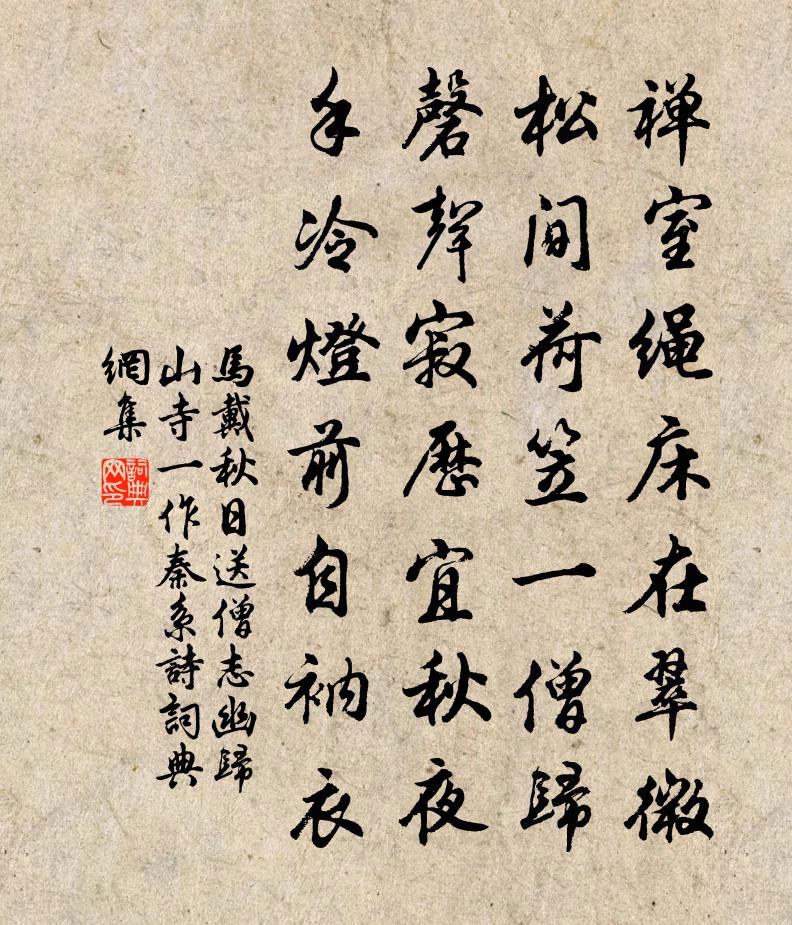 禅室绳床在翠微
松间荷笠一僧歸
磬聲寂歷宜秋夜
手冷燈前自衲衣
馬戴秋日送僧志幽歸
山寺一作秦系詩詞典
網集
詞典网印